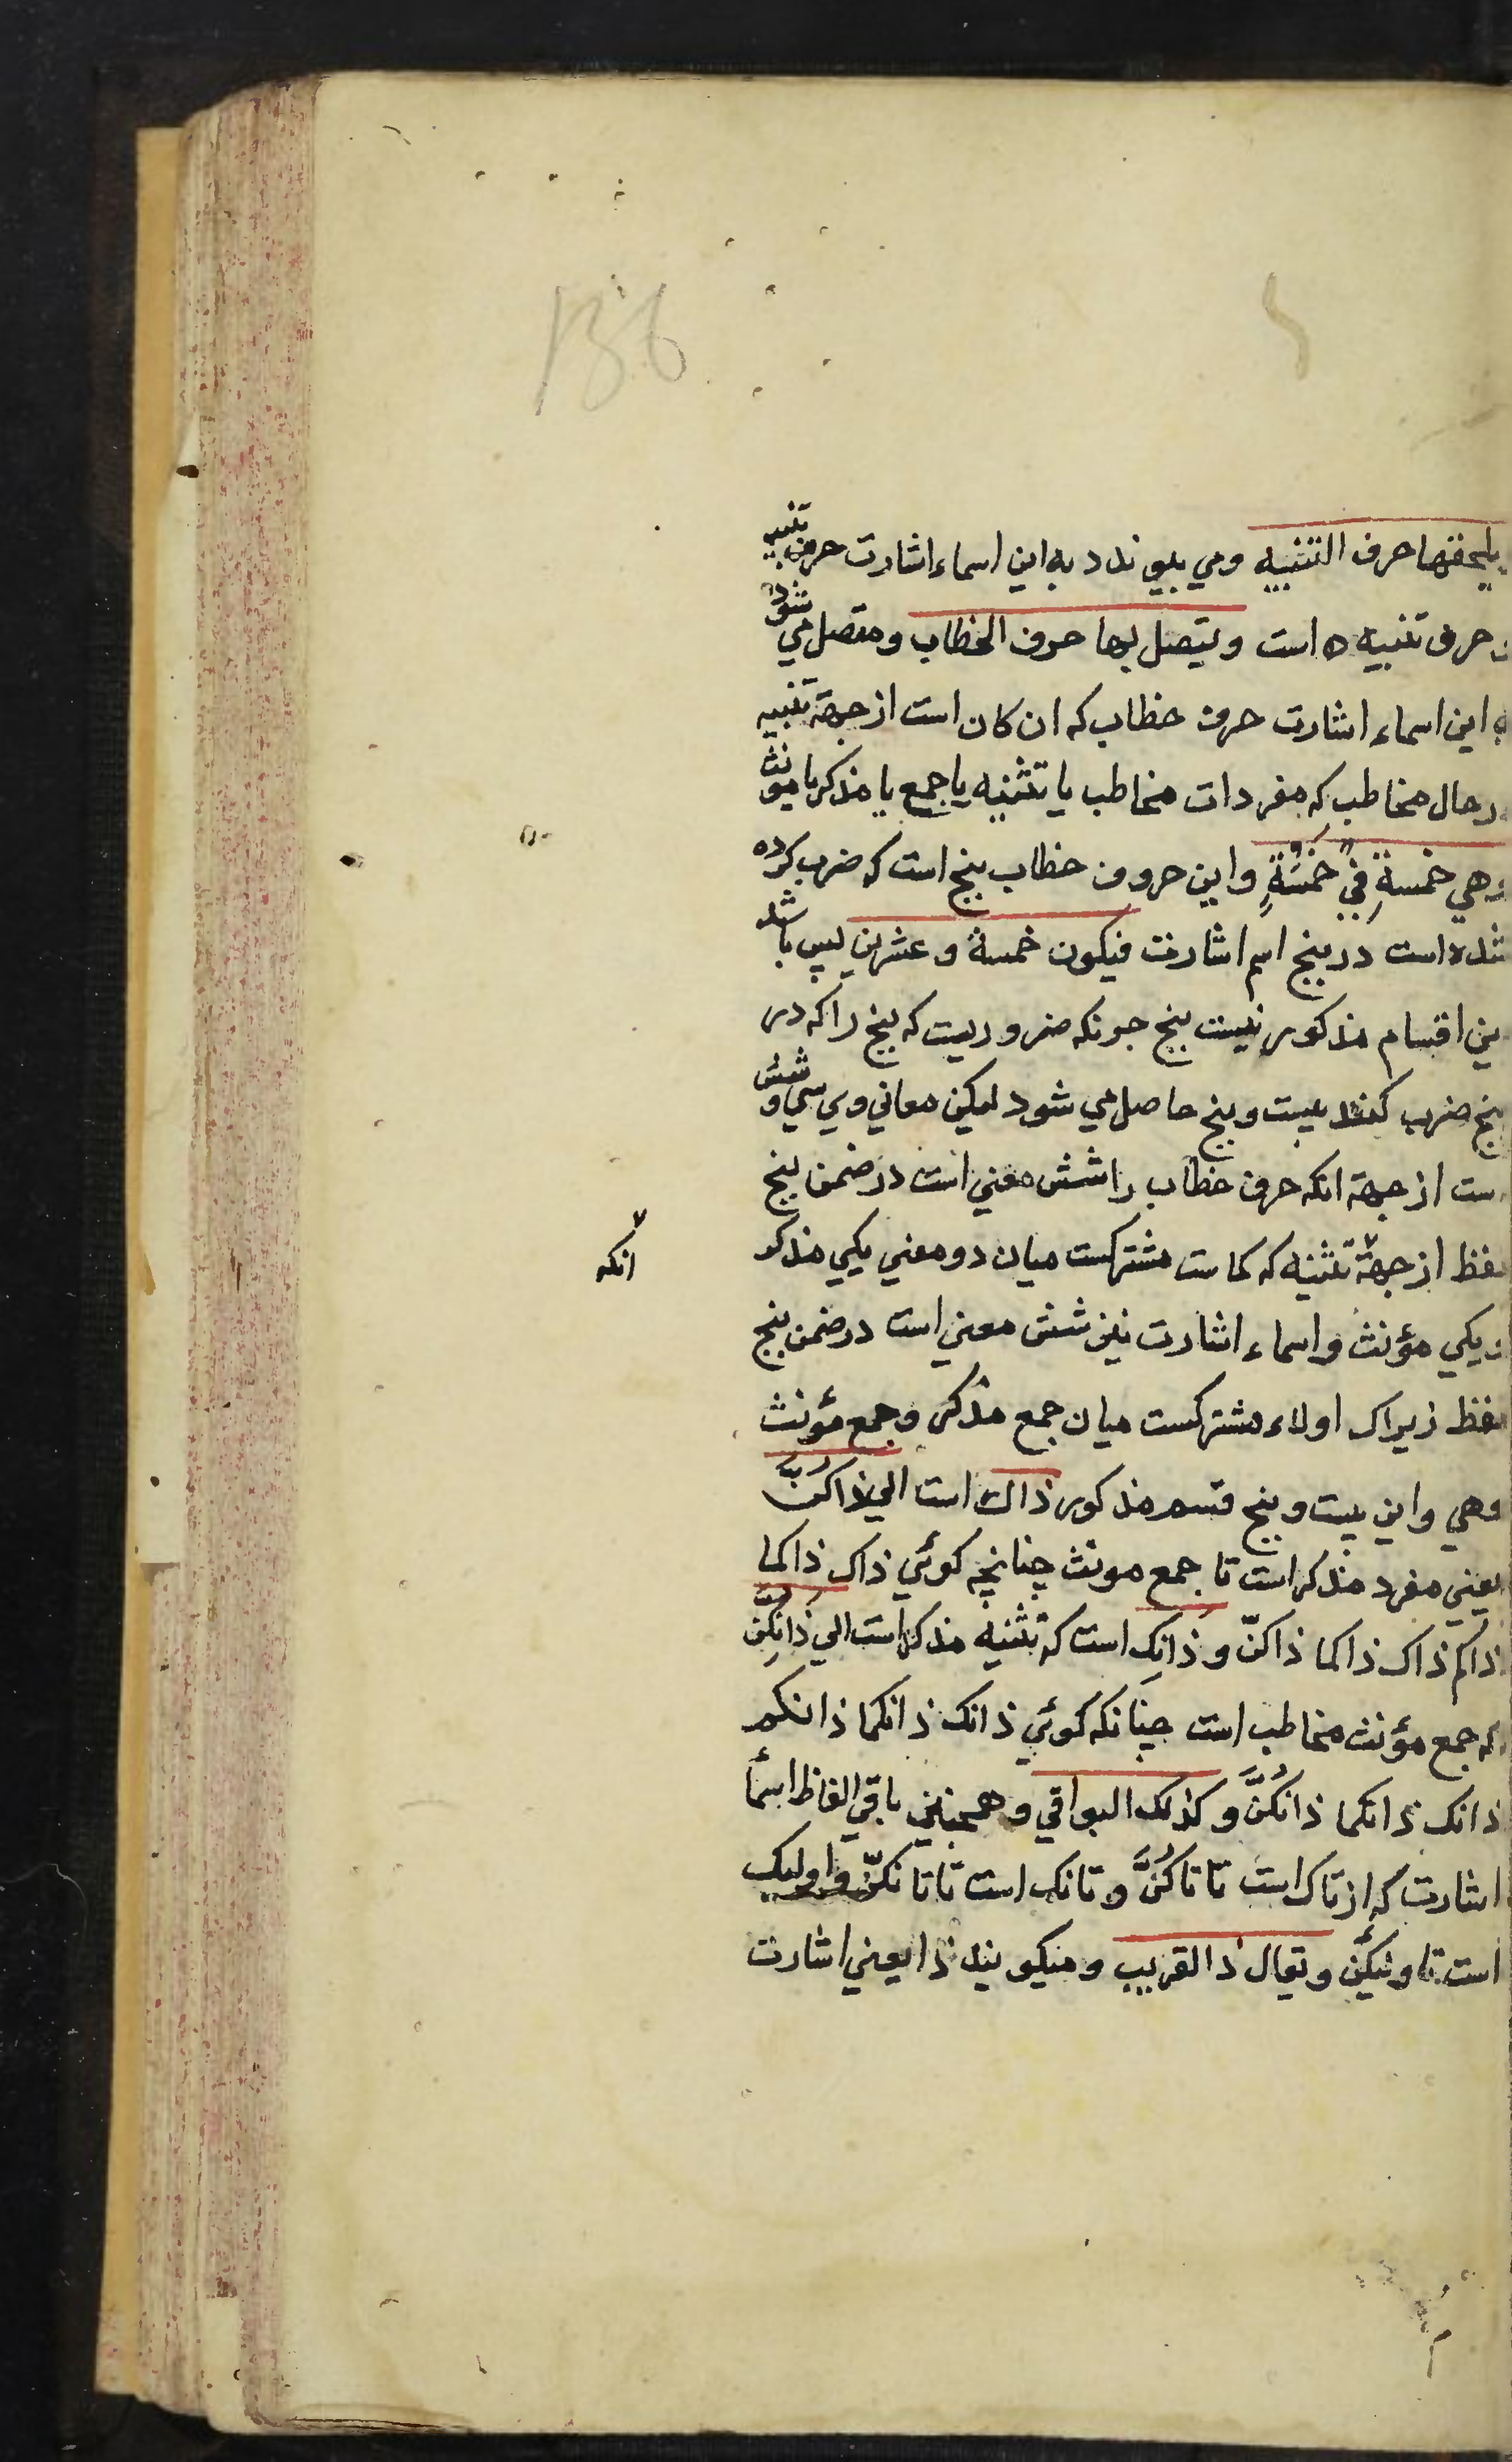 136
يلحقها حرف التنبيه ومي پيوندد به اين اسماء اشارت حرف تنبيه
حرف تنبيه ه است ويتصل بها حرف الخطاب ومتصل مي شود
اين اسماء اشارت حرف خطاب كه ان كان است از جهة تنبيه
درحال مخاطب كه مفردات مخاطب يا تثنيه يا جمع يا مذكر يا مونث
وهي خمسةٍ في خمسةٍ واين حروف خطاب پنج است كه ضرب كرده
شده است در پنج اسم اشارت فيكون خمسة وعشرين پس باشد
اين اقسام مذكور بيست پنج چونكه ضروريست كه پنج را كه در
پنج ضرب كنند بيست وپنج حاصل مي شود ليكن معاني وي سي و شش
است از جهة انكه حرف خطاب را شش معني است در ضمن پنج
لفظ از جهة تثنيه كه كماست مشتركست ميان دو معني يكي مذكر
انكه
ويكي مؤنث واسماء اشارت نيز شش معني است در ضمن پنج
لفظ زيراك اولاء مشتركست ميان جمع مذكر وجمع مؤنث
وهي واين بيست وپنج قسم مذكور ذاك است الي ذاكنّ
يعني مفرد مذكر است تا جمع مونث چنانچه كوئي ذاك ذاكما
ذاكم ذاك ذاكما ذاكنّ وذانك است كه تثنيه مذكر است الي ذانكن
كه جمع مؤنث مخاطب است چنانكه كوئي ذانك ذانكما ذانكم
ذانك ذانكما ذانكنَّ وكذلك البواقي وهمچنين باقي الفاظ اسمأ
اشارت كه از تاك است تا تاكنَّ وتانك است تا تانكنّ واوليك
است تا وليكن ويقال ذا القريب وميكويند ذا يعني اشارت